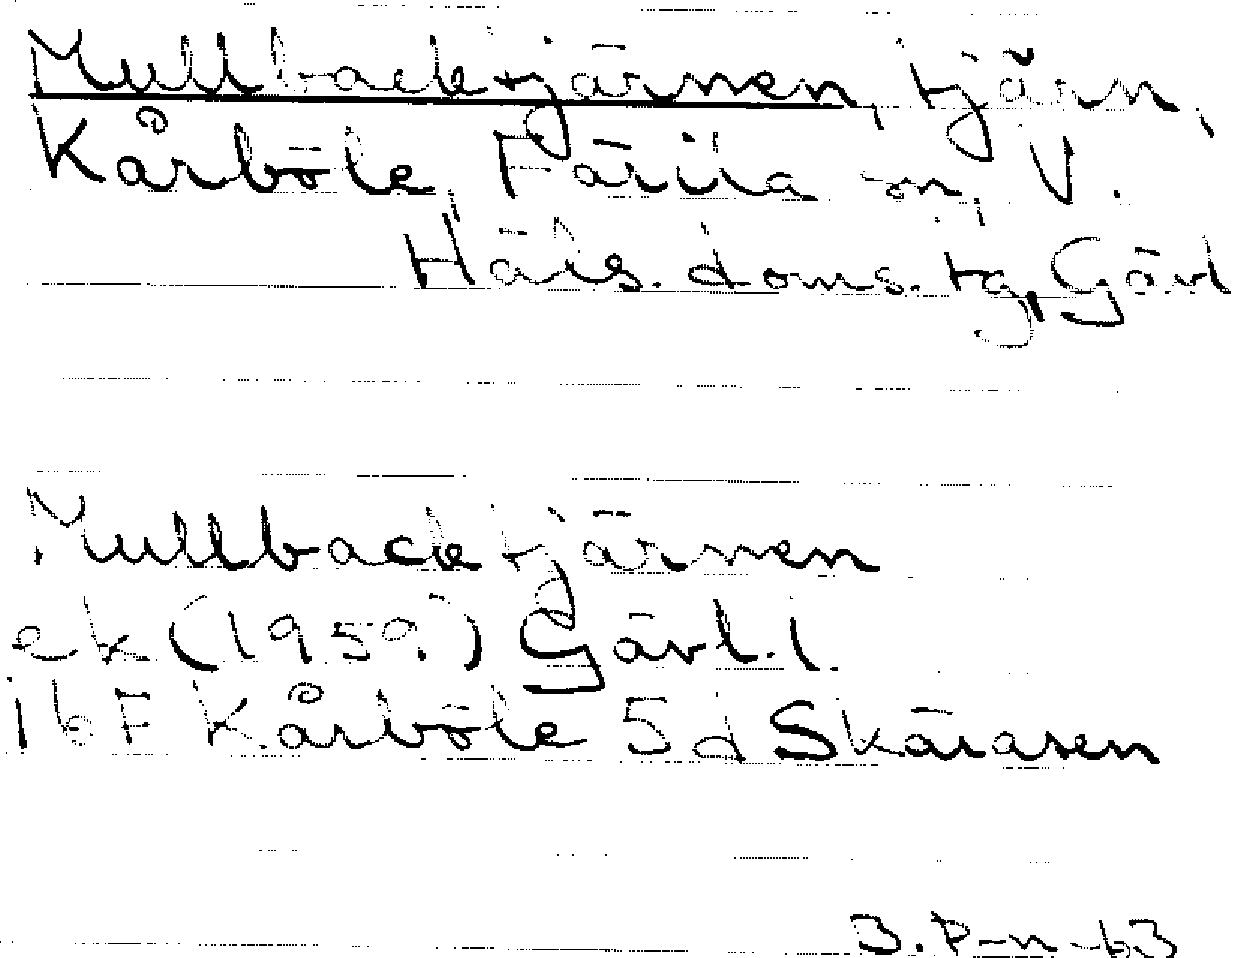 Mullbacktjärnen, tjärn,
Kårböle, Färila sn, V.
Häls. doms. tg, Gävl
Mullbacktjärnen
ek (1959) Gävl.l.
16F Kårböle 5d Skäråsen
B. P-n -63